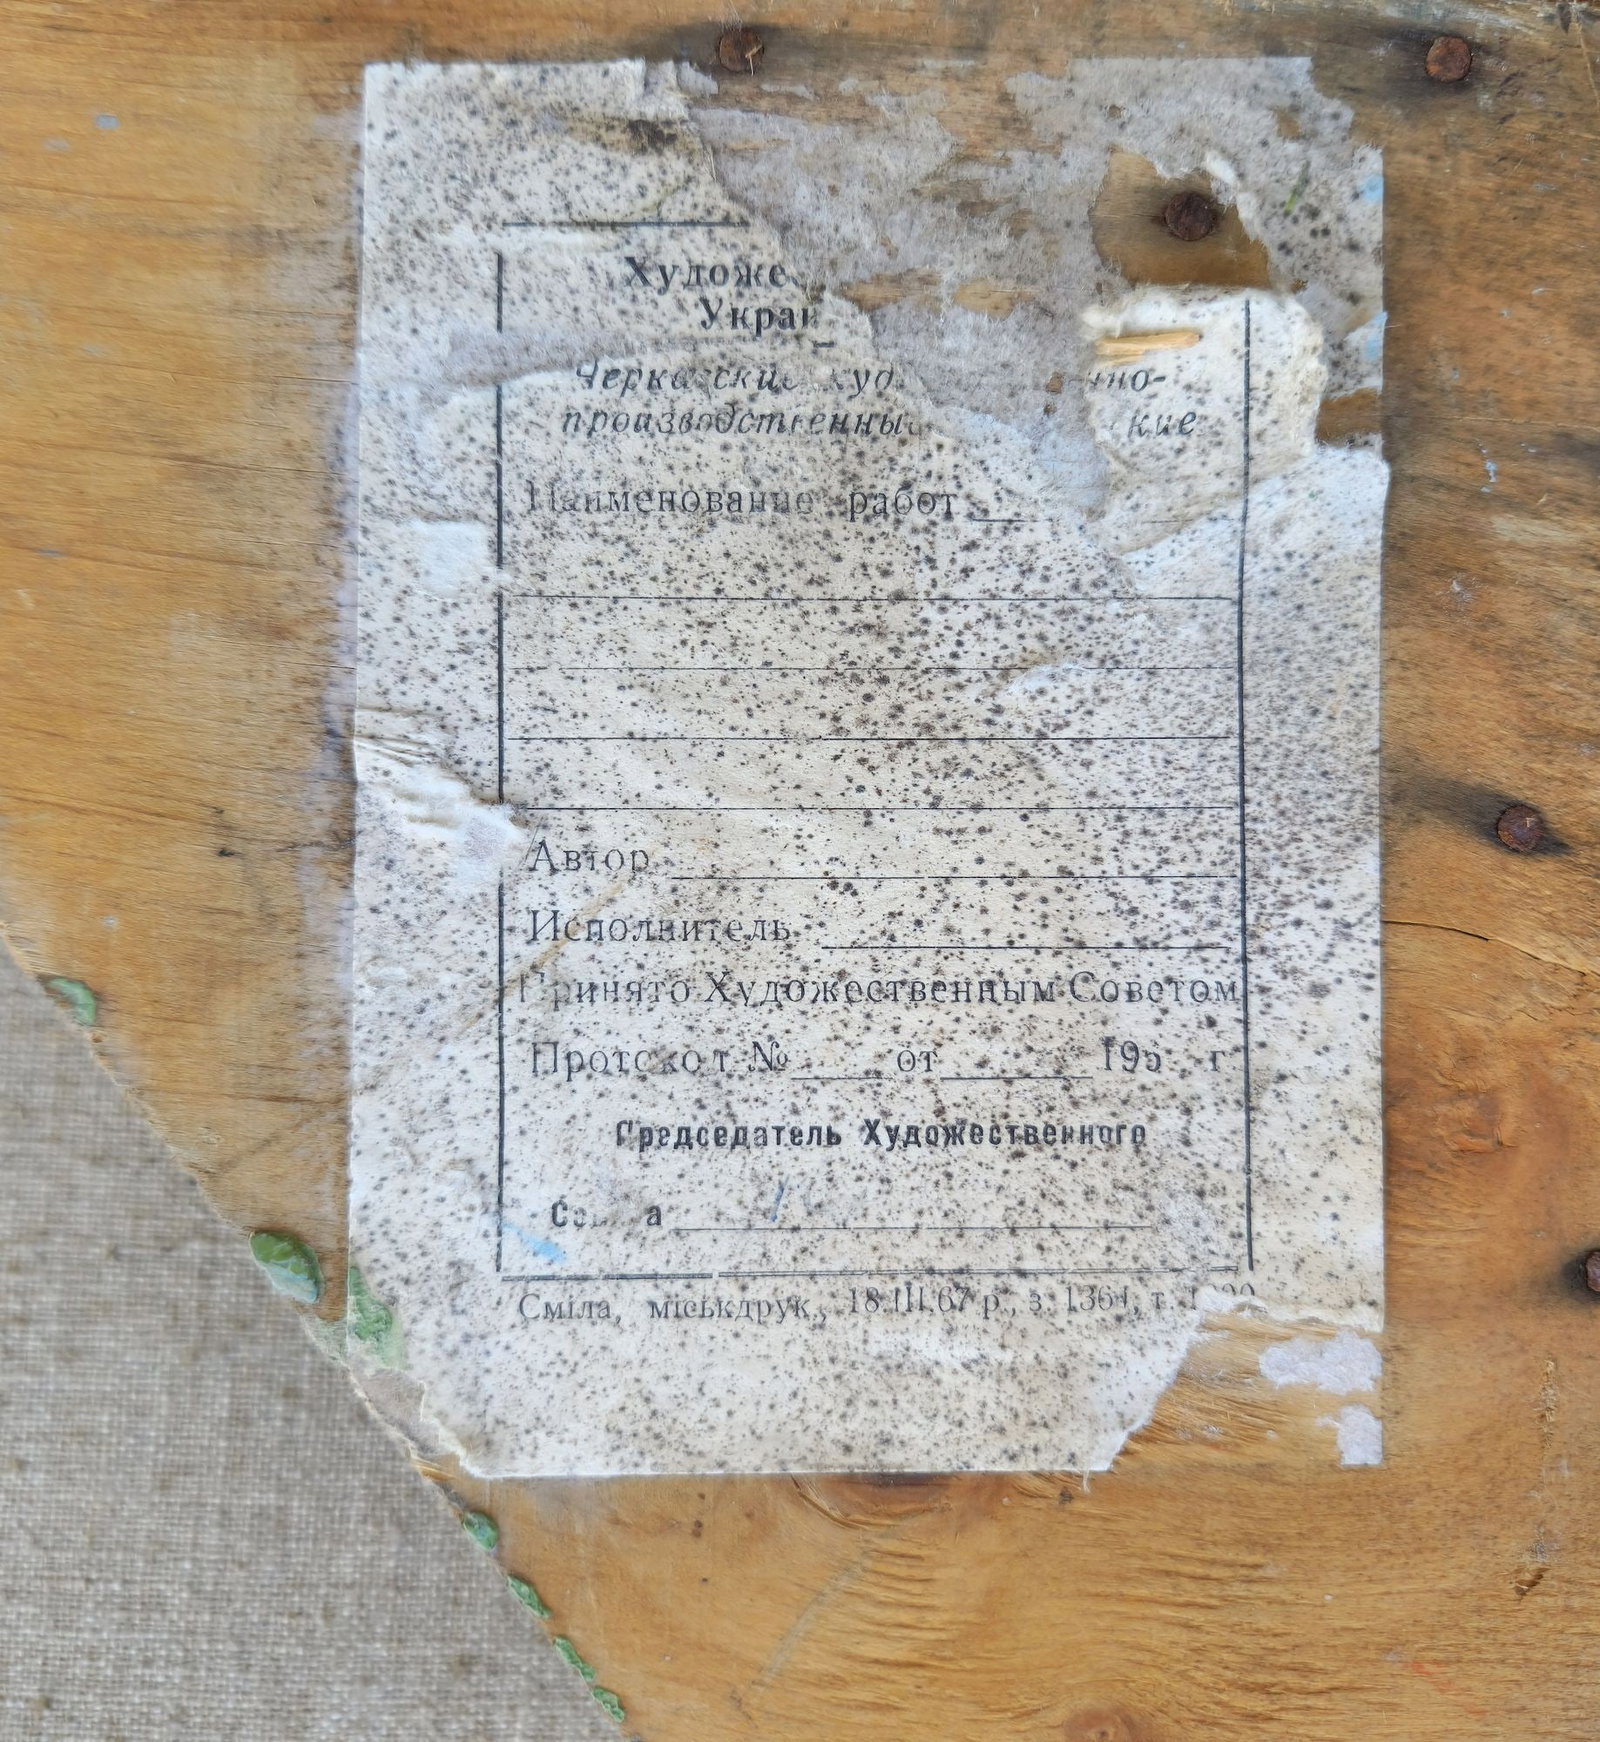 Художе
Украи
Черкасские худ но-
производственны кие
Наименование работ
Автор
Исполнитель
Принято Художественным Советом
Протокол № от 195 г
Председатель Художественного
Со а
Сміла, міськдрук., 18.III.67 р., з. 1364, т.